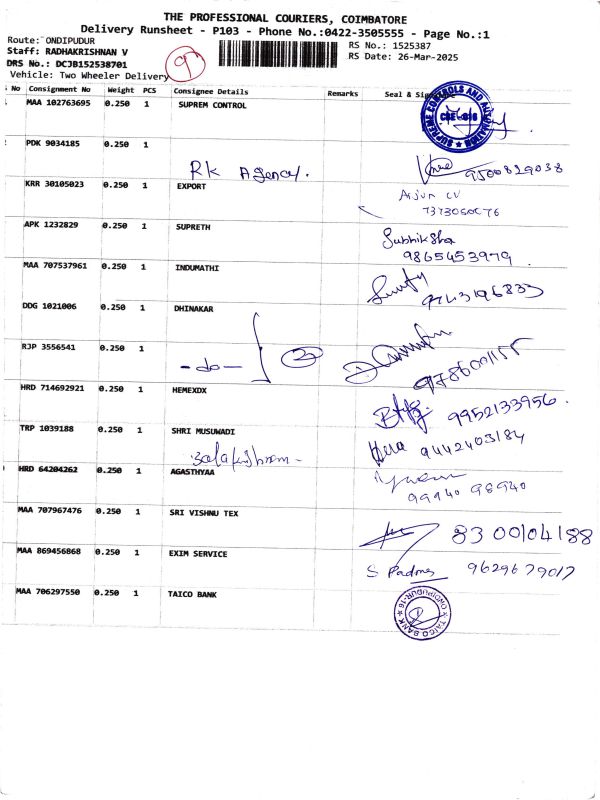 THE PROFESSIONAL COURIERS, COIMBATORE
Delivery Runsheet - P103 - Phone No.:0422-3505555 - Page No.:1
Route: ONDIPUDUR
RS No.: 1525387
Staff: RADHAKRISHNAN V
RS Date: 26-Mar-2025
DRS No.: DCJB152538701
Vehicle: Two Wheeler Delivery
No Consignment No Weight PCS Consignee Details Remarks Seal &
MAA 102763695 0.250 1 SUPREM CONTROL
SUPREME CONTROLS AND AUTOMATION
CBE - 016
PDK 9034185 0.250 1
RK Agency.
9500829038
KRR 30105023 0.250 1 EXPORT
Arjun CV
7373050076
APK 1232829 0.250 1 SUPRETH
9865453979
MAA 707537961 0.250 1 INDUMATHI
9743196833
DDG 1021006 0.250 1 DHINAKAR
RJP 3556541 0.250 1
-do- 2
9786001155
HRD 714692921 0.250 1 HEMEXDX
9952133956.
TRP 1039188 0.250 1 SHRI MUSUWADI
9442403184
HRD 64204262 0.250 1 AGASTHYAA
99940 98940
MAA 707967476 0.250 1 SRI VISHNU TEX
8300104188
MAA 869456868 0.250 1 EXIM SERVICE
S Padma 9629679017
MAA 706297550 0.250 1 TAICO BANK
TAICO BANK
ONDIPUDUR-16